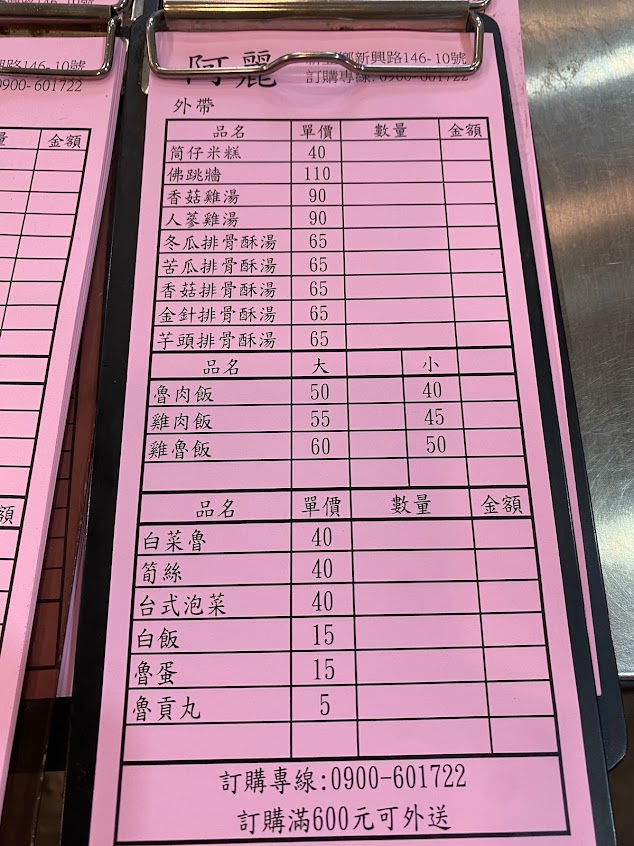 阿麗
鄉新興路146-10號
訂購專線:0900-601722
外帶
品名 單價 數量 金額
筒仔米糕 40
佛跳牆 110
香菇雞湯 90
人蔘雞湯 90
冬瓜排骨酥湯 65
苦瓜排骨酥湯 65
香菇排骨酥湯 65
金針排骨酥湯 65
芋頭排骨酥湯 65
品名 大 小
魯肉飯 50 40
雞肉飯 55 45
雞魯飯 60 50
品名 單價 數量 金額
白菜魯 40
筍絲 40
台式泡菜 40
白飯 15
魯蛋 15
魯貢丸 5
訂購專線:0900-601722
訂購滿600元可外送
興路146-10號
0900-601722
量 金額
額